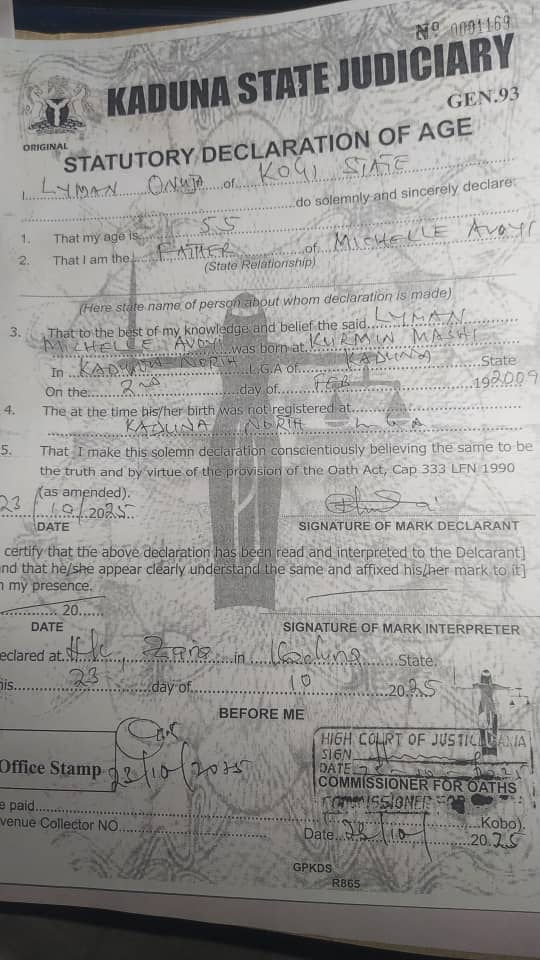 Nº 0001169
KADUNA STATE JUDICIARY
GEN.93
ORIGINAL
STATUTORY DECLARATION OF AGE
I LYMAN ONUJA of KOGI STATE
do solemnly and sincerely declare:
1. That my age is 55
2. That I am the FATHER of MICHELLE AVOYI
(State Relationship)
(Here state name of person about whom declaration is made)
3. That to the best of my knowledge and belief the said LYMAN
MICHELLE AVOYI was born at KURMIN MASHI
In KADUNA NORTH L.G.A of KADUNA State
On the 2nd day of FEB 192009
4. The at the time his/her birth was not registered at
KADUNA NORTH LGA
5. That I make this solemn declaration conscientiously believing the same to be
the truth and by virtue of the provision of the Oath Act, Cap 333 LFN 1990
(as amended).
23 / 10 / 2025
DATE
SIGNATURE OF MARK DECLARANT
certify that the above declaration has been read and interpreted to the Delcarant]
nd that he/she appear clearly understand the same and affixed his/her mark to it]
my presence.
20
DATE
SIGNATURE OF MARK INTERPRETER
eclared at Zaria in Kaduna State.
is 23 day of 10 2025
BEFORE ME
HIGH COURT OF JUSTICE
SIGN
DATE
COMMISSIONER FOR OATHS
Office Stamp 23/10/2025
e paid Kobo)
venue Collector NO.
Date 23/10/ 2025
GPKDS
R865